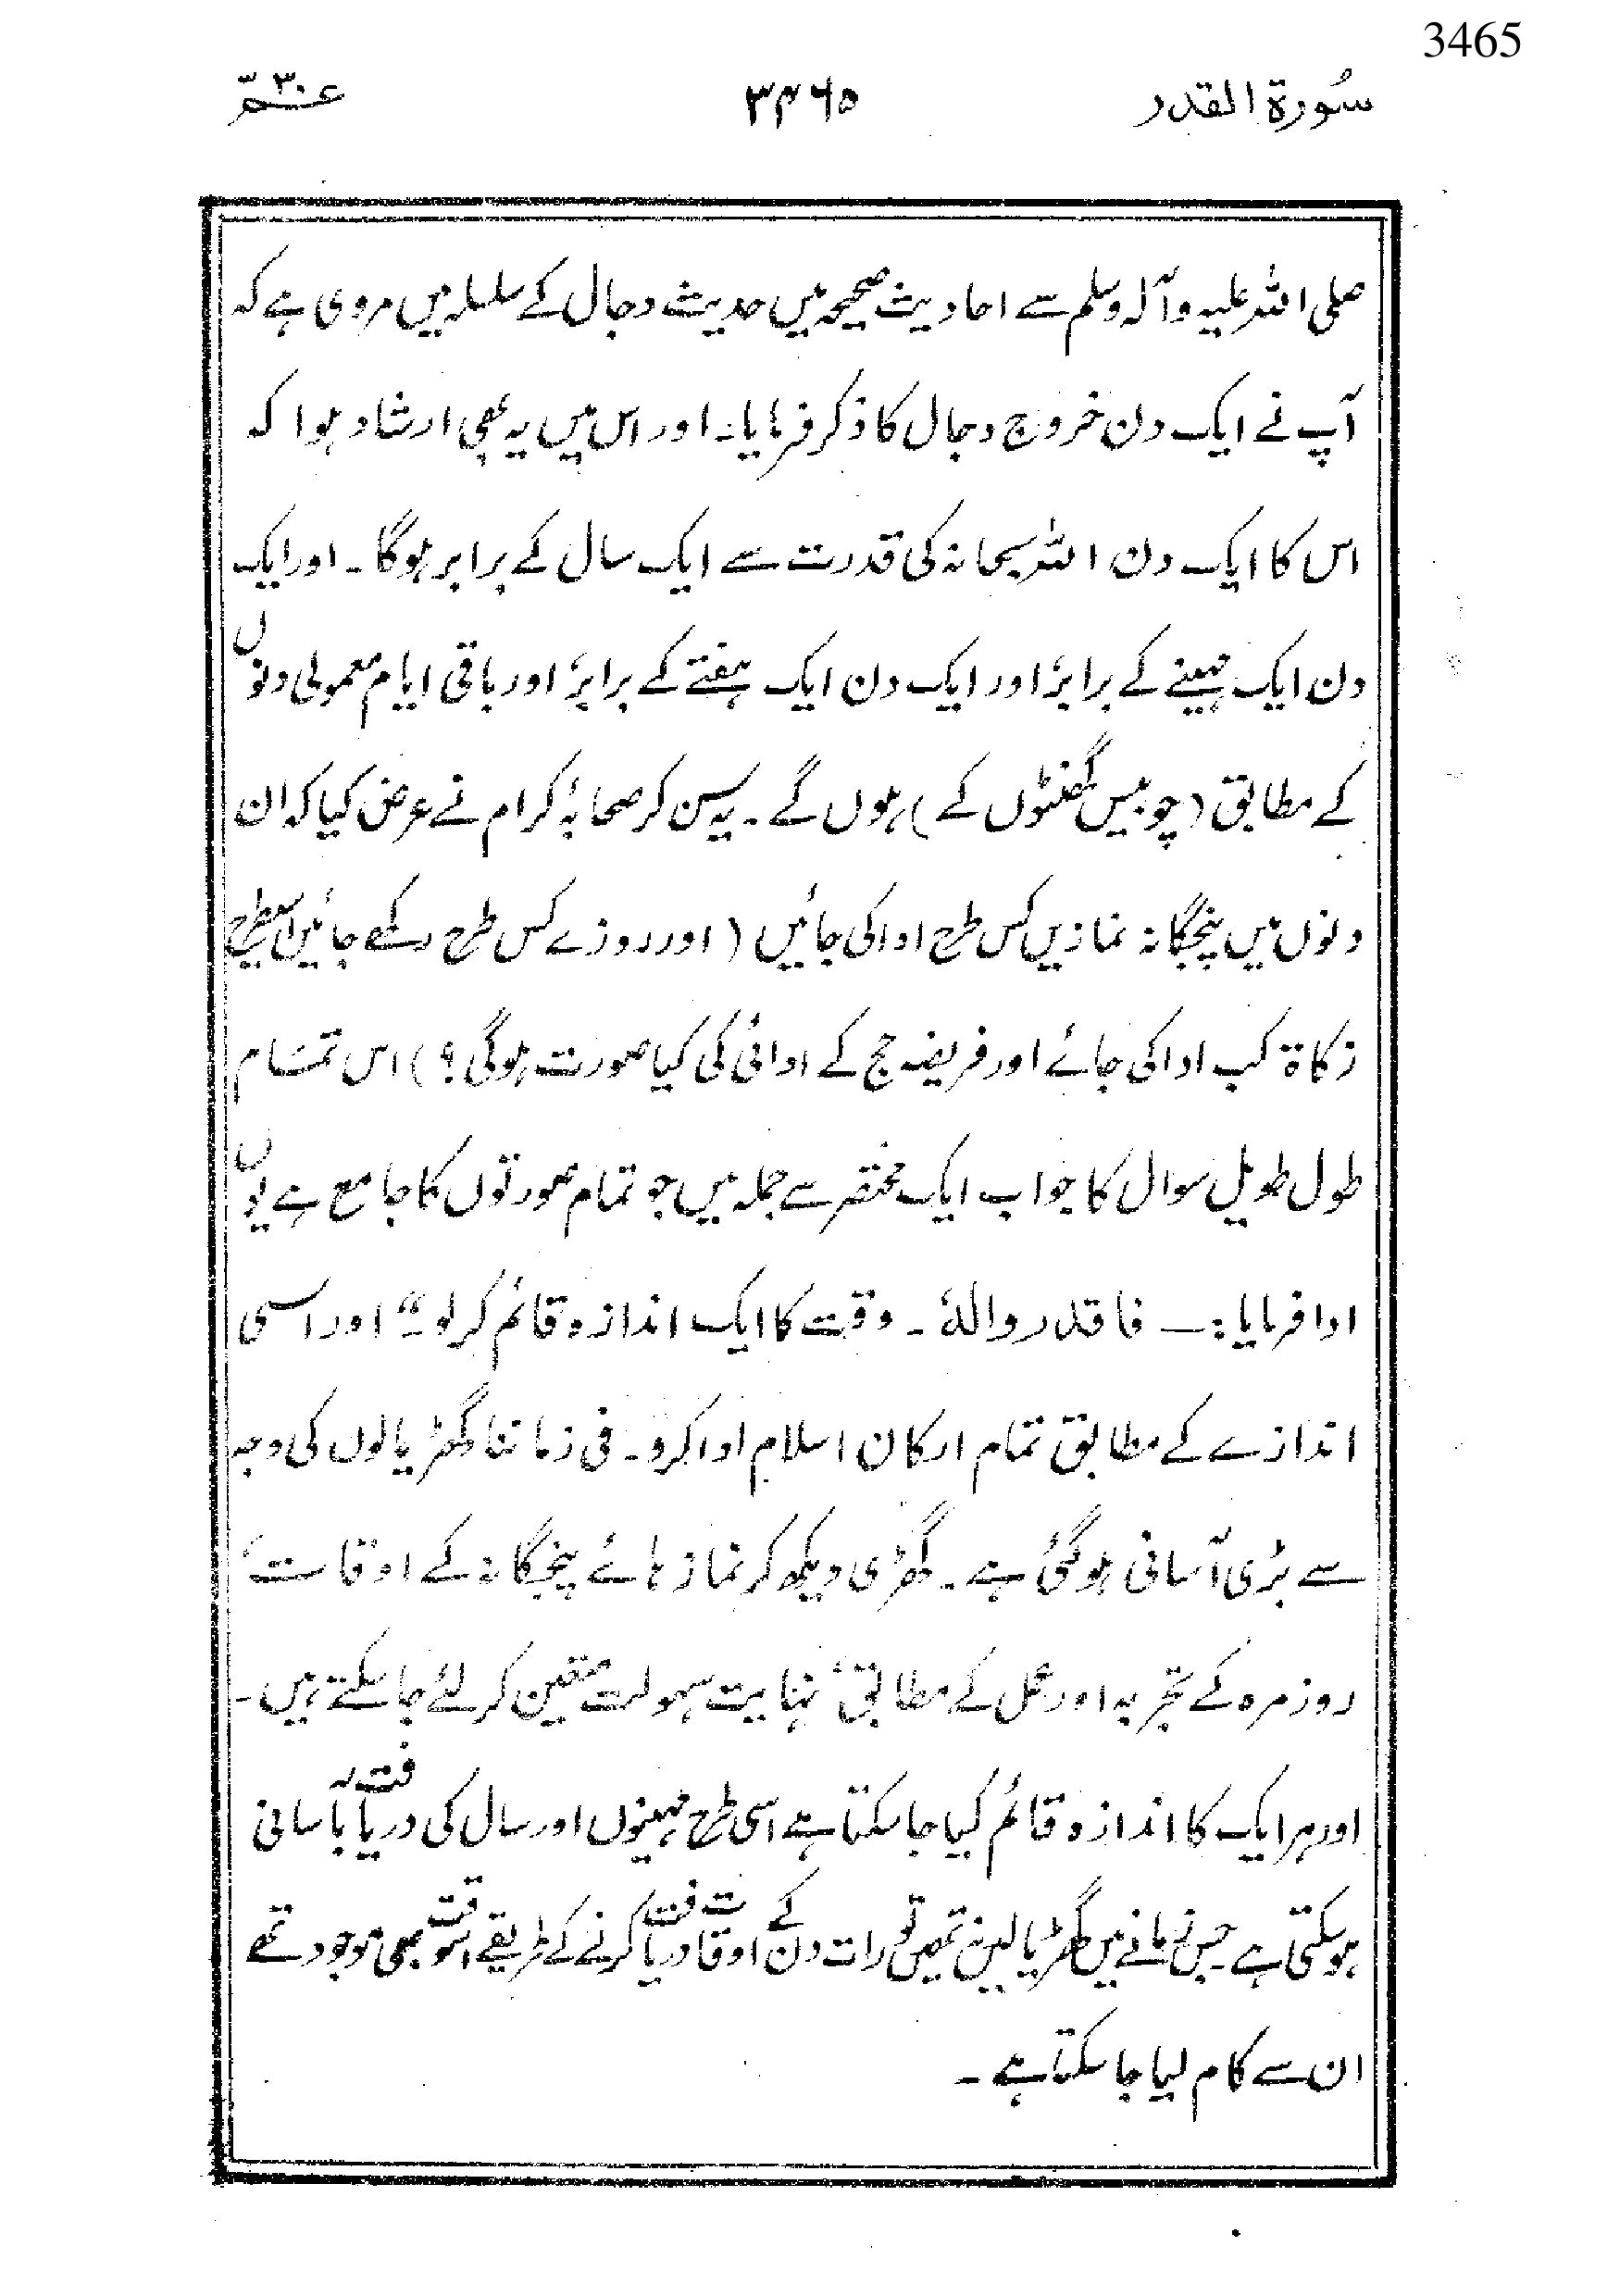 3465
سُورۃ القدر ۳۴۶۵ عــمّ ۳۰
صلی اللہ علیہ وآلہ وسلم سے احادیث صحیحہ میں حدیث دجال کے سلسلہ میں مروی ہے کہ
آپ نے ایک دن خروج دجال کا ذکر فرمایا۔ اور اس میں یہ بھی ارشاد ہوا کہ
اس کا ایک دن اللہ سبحانہ کی قدرت سے ایک سال کے برابر ہوگا۔ اور ایک
دن ایک مہینے کے برابر، اور ایک دن ایک ہفتے کے برابر، اور باقی ایام معمولی دنوں
کے مطابق (چوبیس گھنٹوں کے) ہوں گے۔ یہ سن کر صحابۂ کرام نے عرض کیا کہ ان
دنوں میں پنجگانہ نمازیں کس طرح ادا کی جائیں (اور روزے کس طرح رکھے جائیں اسطرح
زکاۃ کب ادا کی جائے اور فریضہ حج کے ادائی کی کیا صورت ہوگی؟) اس تمام
طول طویل سوال کا جواب ایک مختصر سے جملہ میں جو تمام صورتوں کا جامع ہے یوں
ادا فرمایا:۔ فاقدروالہٗ۔ وقت کا ایک اندازہ قائم کر لو۔“ اور اسی
اندازے کے مطابق تمام ارکان اسلام ادا کرو۔ فی زماننا گھڑیالوں کی وجہ
سے بڑی آسانی ہوگئی ہے۔ گھڑی دیکھ کر نماز ہائے پنجگانہ کے اوقات،
روزمرہ کے تجربہ اور عمل کے مطابق، نہایت سہولت متعین کر لئے جاسکتے ہیں۔
اور ہر ایک کا اندازہ قائم کیا جاسکتا ہے اسی طرح مہینوں اور سال کی دریافت بہ آسانی
ہوسکتی ہے جس زمانے میں گھڑیالیں نہ تھیں تو رات دن کے اوقات دریافت کرنے کے طریقے اسوقت بھی موجود تھے
ان سے کام لیا جاسکتا ہے۔